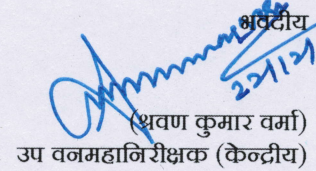 भवदीय
(श्रवण कुमार वर्मा)
उप वनमहानिरीक्षक (केन्द्रीय)